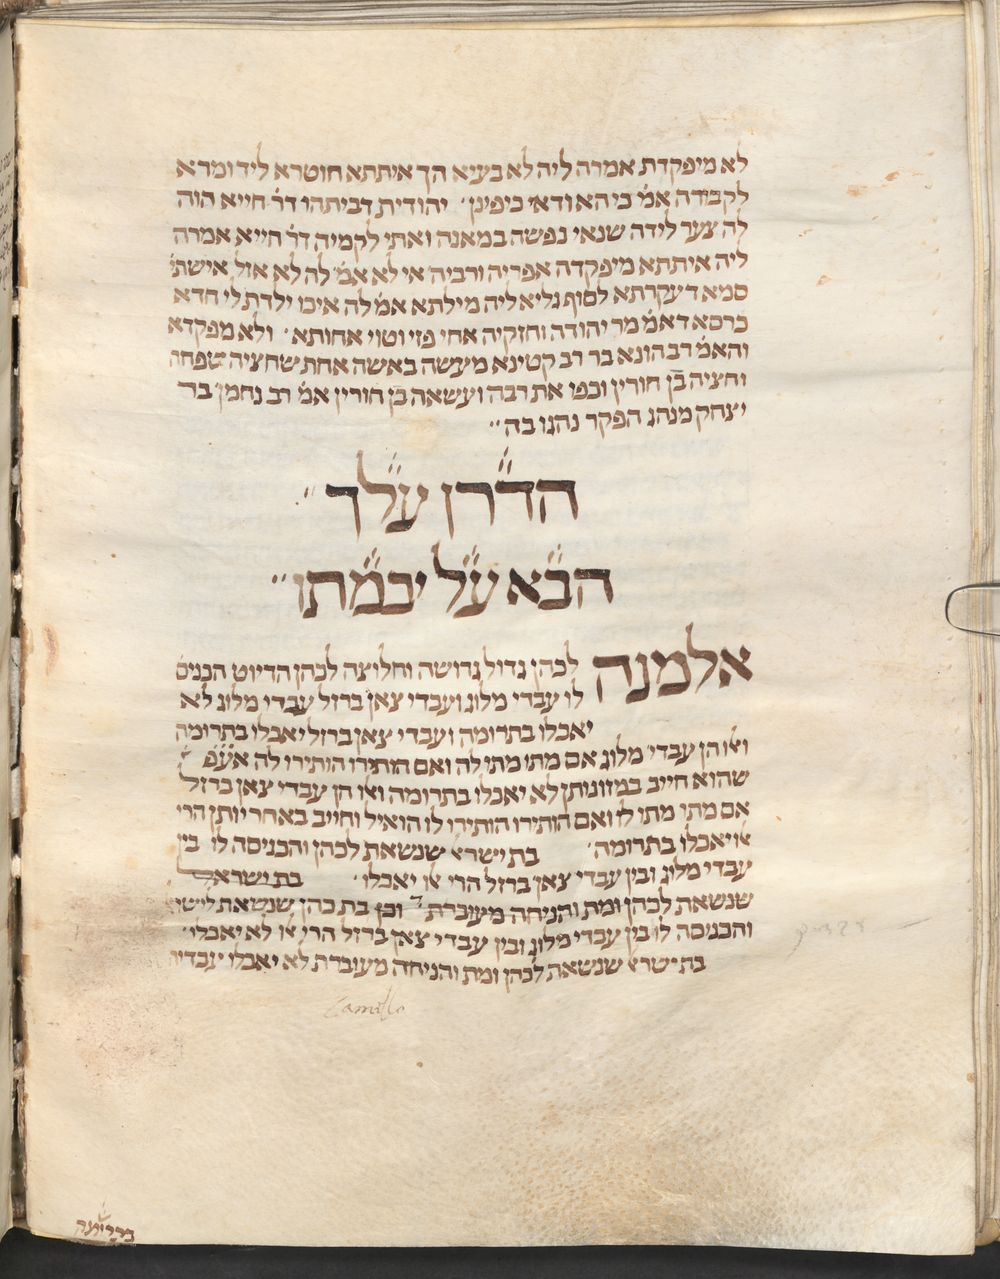 לא מיפקדת אמרה ליה לא בעיא הך איתתא חוטרא ליד ומרא
לקבורה אמ׳ כי הא ודאי כיפינן׳ יהודית דביתהו דר׳ חייא הוה
לה צער לידה שנאי נפשה במאנה ואתי לקמיה דר׳ חייא אמרה
ליה איתתא מיפקדה אפריה ורביה אי לא אמ׳ לה לא אזל אישתי
סמא דעקרתא לסוף גליא ליה מילתא אמ׳ לה איכו ילדת לי חדא
כרסא דאמ׳ מר יהודה וחזקיה אחי פזי וטוי אחותא׳ ולא מפקדא
והאמ׳ רב הונא בר רב קטינא מעשה באשה אחת שחציה שפחה
וחציה בן חורין וכפו את רבה ועשאה בן חורין אמ׳ רב נחמן בר
יצחק מנהג הפקר נהגו בה׳׳
הדרן עלך
הבא על יבמתו
אלמנה לכהן גדול גרושה וחלוצה לכהן הדיוט הכניס
לו עבדי מלוג ועבדי צאן ברזל עבדי מלוג לא
יאכלו בתרומה ועבדי צאן ברזל יאכלו בתרומה
ואלו הן עבדי מלוג אם מתו מתו לה ואם הותירו הותירו לה אע״פ
שהוא חייב במזונותן לא יאכלו בתרומה ואלו הן עבדי צאן ברזל
אם מתו מתו לו ואם הותירו הותירו לו הואיל וחייב באחריותן הרי
אלו יאכלו בתרומה׳ בת ישראל שנשאת לכהן והכניסה לו בין
עבדי מלוג ובין עבדי צאן ברזל הרי אלו יאכלו׳ בת ישראל
שנשאת לכהן ומת והניחה מעוברת וכן בת כהן שנשאת לישר׳
והכניסה לו בין עבדי מלוג ובין עבדי צאן ברזל הרי אלו לא יאכלו׳
בת ישראל שנשאת לכהן ומת והניחה מעוברת לא יאכלו עבדיה
Camillo